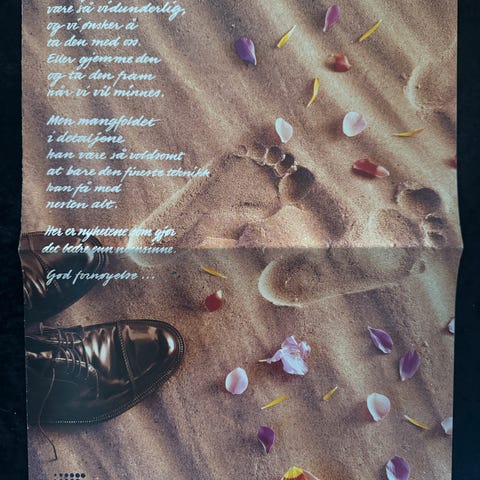 være så vidunderlig,
og vi ønsker å
ta den med oss.
Eller gjemme den
og ta den fram
når vi vil minnes.
Men mangfoldet
i detaljene
kan være så voldsomt
at bare den fineste teknikk
kan få med
nesten alt.
Her er nyhetene som gjør
det bedre enn noensinne.
God fornøyelse...